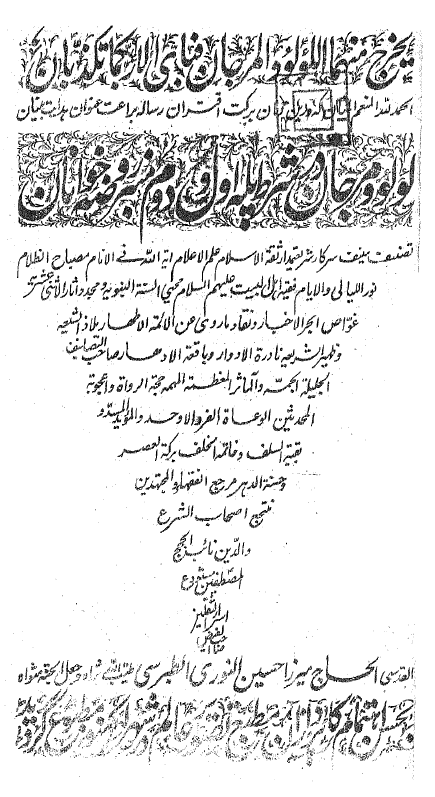 يخرج منهما اللؤلؤ و المرجان فبأي آلاء ربكما تكذبان
الحمد لله المنعم كه بركت اقتران رساله براعت عنوان هدايت بنيان
لؤلؤ و مرجان در شرط پله اول و دوم منبر روضه خوانان
تصنيف منيف سركار شريعتمدار ثقة الاسلام علم الاعلام آية الله في الانام مصباح الظلام
نور الليالي والايام فقيه اهل البيت عليهم السلام محيي السنة النبوية ومجدد آثار الاثني عشرية
غواص بحر الاخبار ونقاد ما روي عن الائمة الاطهار ملاذ الشيعة
وظهير الشريعة نادرة الادوار وباقعة الادهار صاحب التصانيف
الجليلة الجمة والمآثر العظيمة المهمة حجة الرواة واعجوبة
المحدثين الوعاة الفرد الاوحد والمؤيد المسدد
بقية السلف وخاتمة الخلف بركة العصر
وحسنة الدهر مرجع الفقهاء والمجتهدين
منتجع اصحاب الشرع
والدين نائب الحجج
المصطفين مستودع
اسرار الثقلين
القدسي الحاج ميرزا حسين النوري الطبرسي طيب الله ثراه وجعل الجنة مثواه